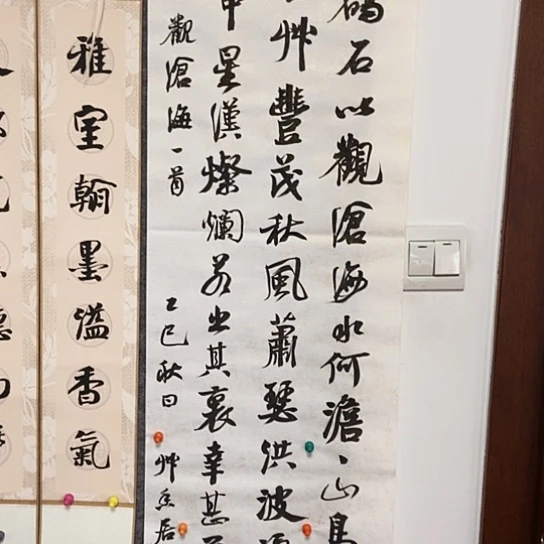 碣石以觀滄海水何澹、山島
艸豐茂秋風蕭瑟洪波
中星漢燦爛若出其裏幸甚
觀滄海一首
乙巳秋日
雅室翰墨溢香氣